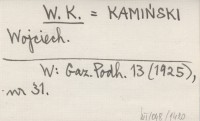 W. K. = KAMIŃSKI
Wojciech.
W: Gaz. Podh. 13 (1925),
nr 31.